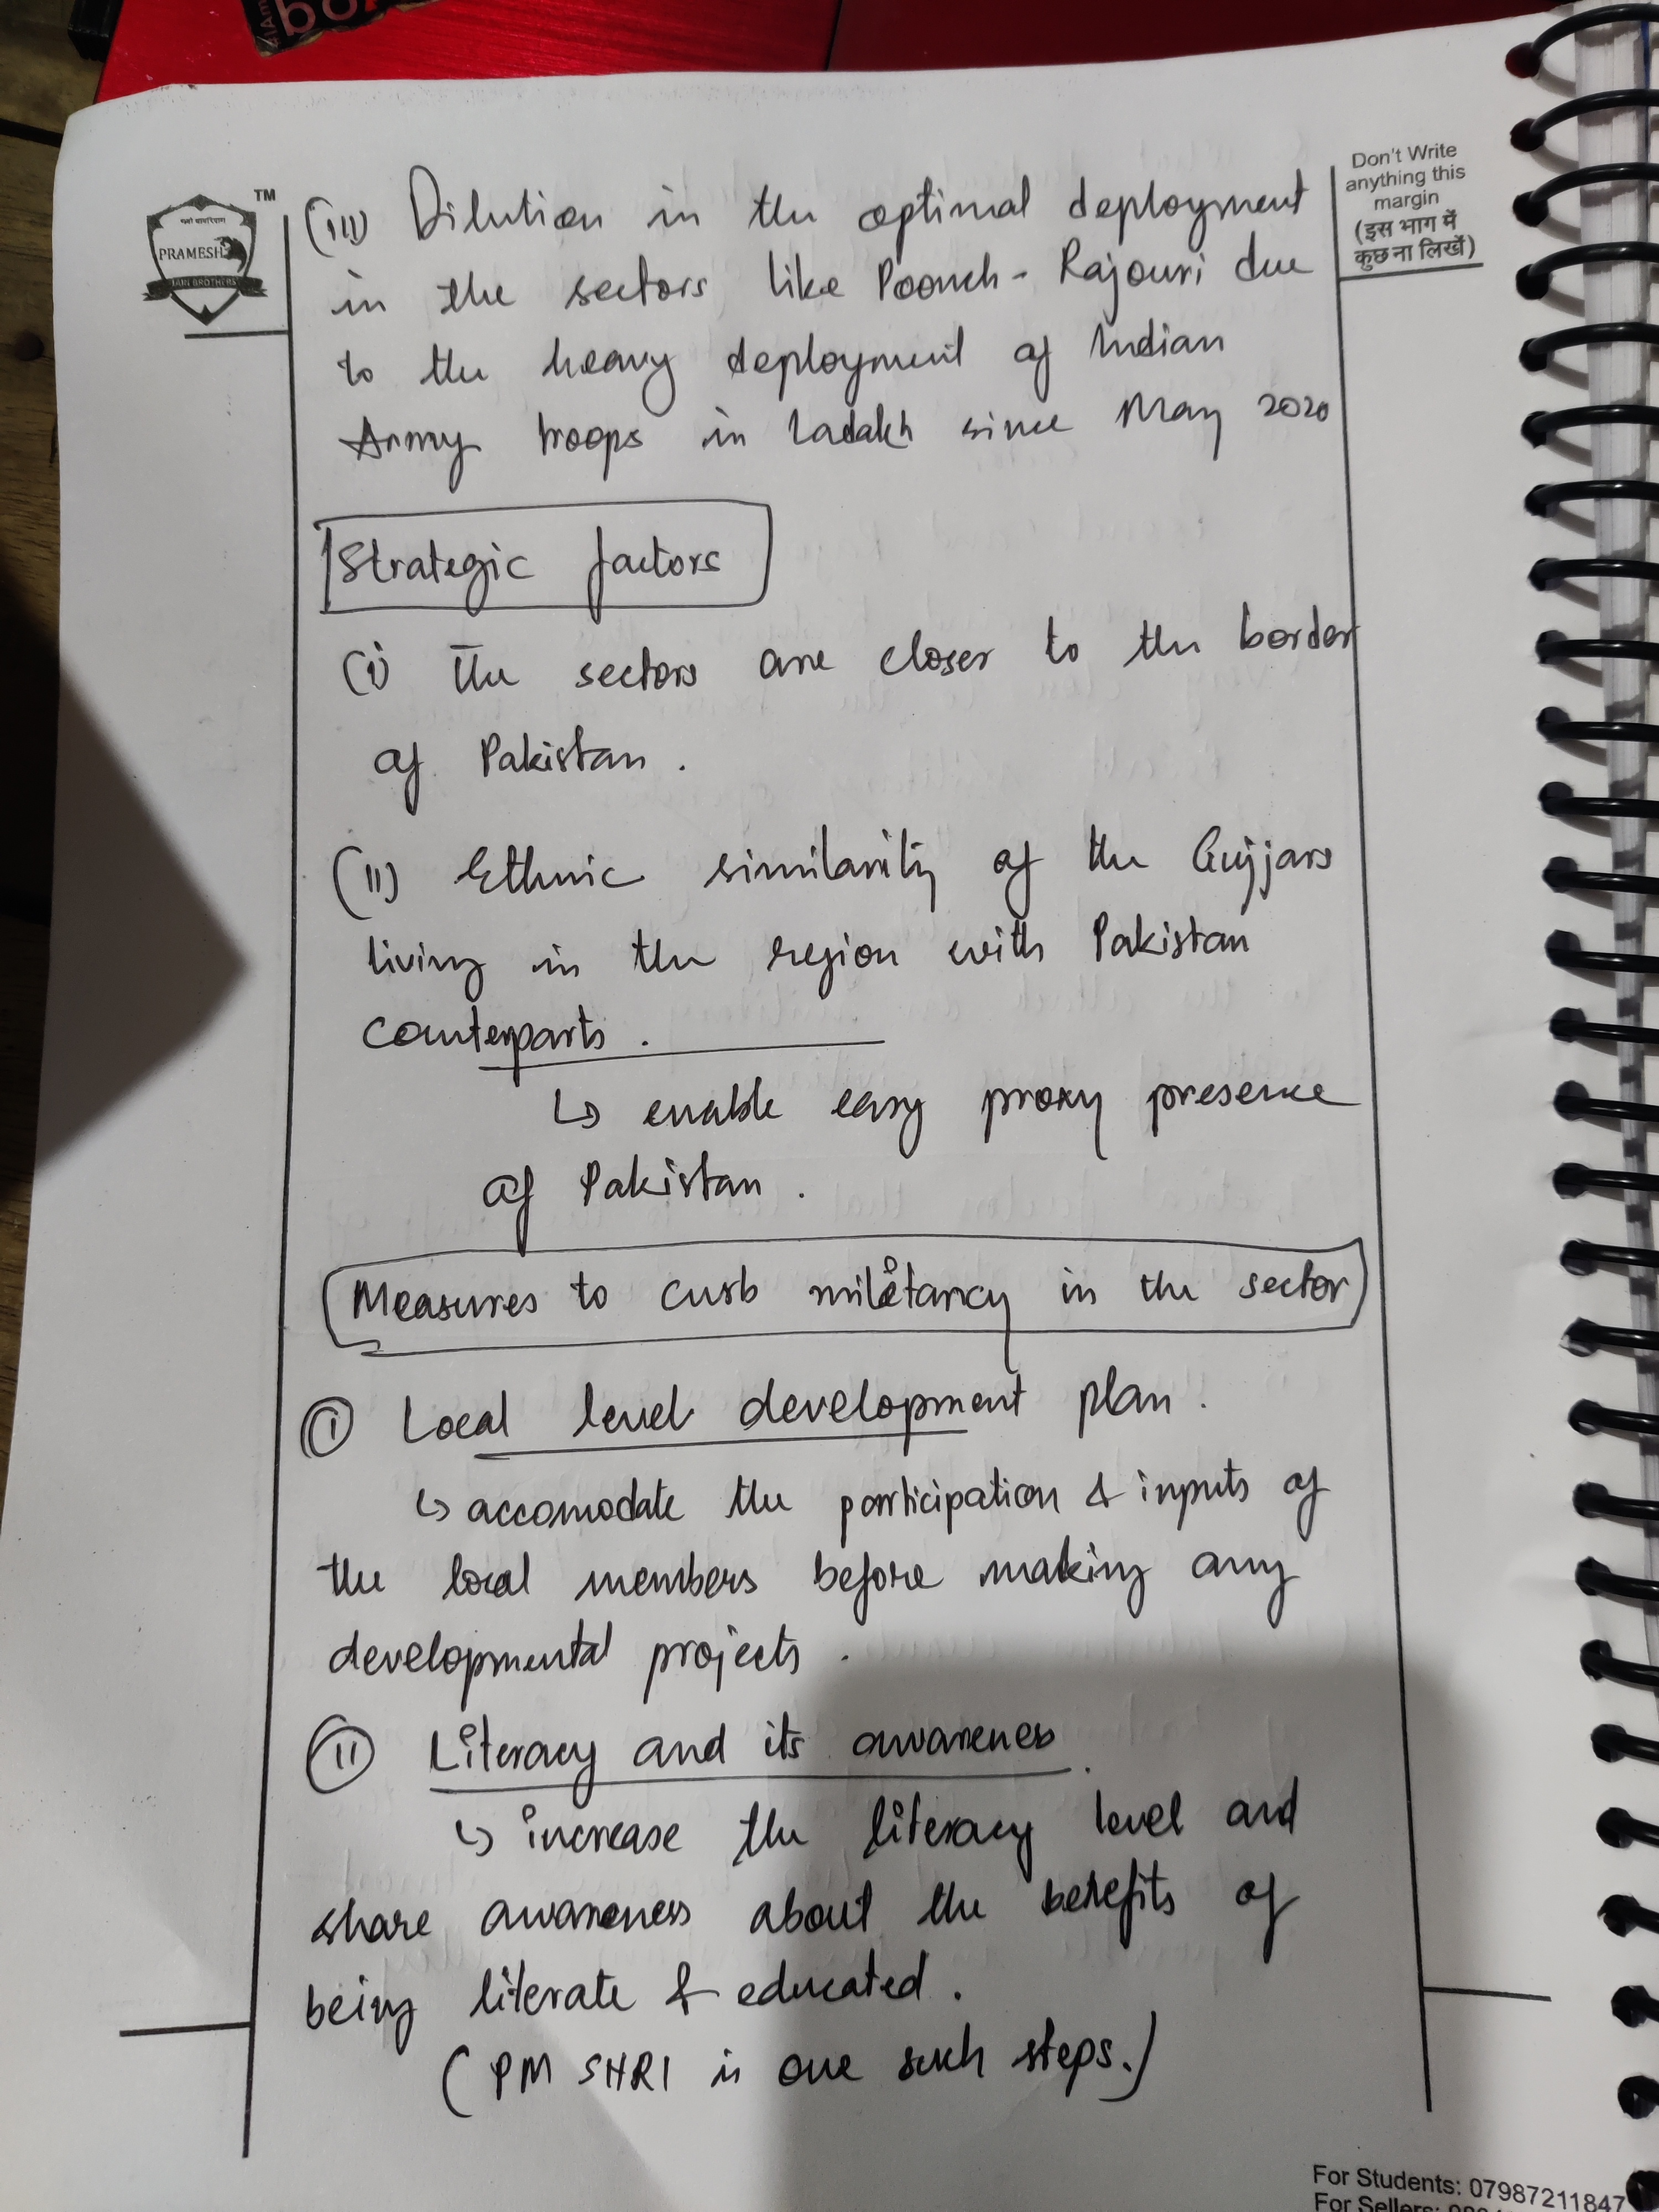 TM
PRAMESH
JAIN BROTHERS
Don't Write
anything this
margin
(इस भाग में
कुछ ना लिखें)
(iii) Dilution in the optimal deployment
in the sectors like Poonch - Rajouri due
to the heavy deployment of Indian
Army troops in Ladakh since May 2020
Strategic factors
(i) The sectors are closer to the border
of Pakistan.
(ii) Ethnic similarity of the Gujjars
living in the region with Pakistan
counterparts.
↳ enable easy proxy presence
of Pakistan.
Measures to curb militancy in the sector
(i) Local level development plan.
↳ accomodate the participation & inputs of
the local members before making any
developmental projects.
(ii) Literacy and its awareness.
↳ increase the literacy level and
share awareness about the benefits of
being literate & educated.
(PM SHRI is one such steps.)
For Students: 07987211847
For Sellers: